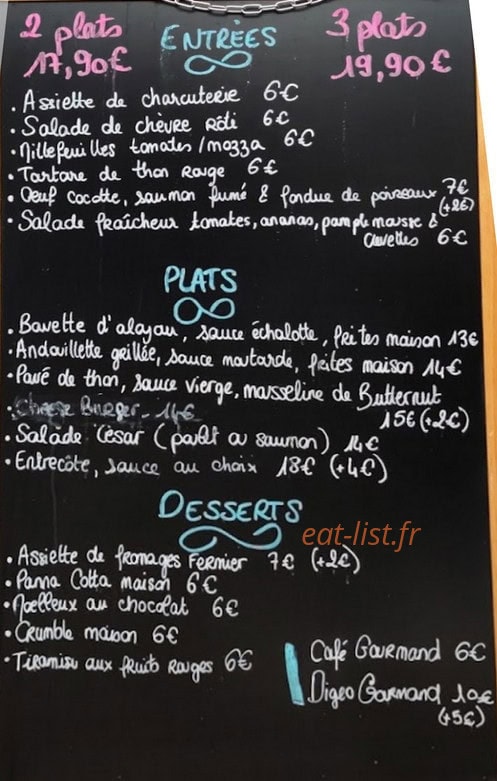 2 plats
17,90€
ENTRÉES
3 plats
19,90€
. Assiette de charcuterie 6€
. Salade de chèvre Rôti 6€
. Millefeuilles tomates/mozza 6€
. Tartare de thon Rouge 6€
. Oeuf Cocotte, saumon fumé & fondue de poireaux 7€
(+2€)
. Salade fraîcheur tomates, ananas, pamplemousse &
Crevettes 6€
PLATS
. Bavette d'aloyau, sauce échalotte, frites maison 13€
. Andouillette grillée, sauce moutarde, frites maison 14€
. Pavé de thon, sauce vierge, mousseline de Butternut
15€ (+2€)
. Cheese Burger - 14€
. Salade César (poulet ou saumon) 14€
. Entrecôte, sauce au choix 18€ (+4€)
DESSERTS
eat-list.fr
. Assiette de fromages Fermier 7€ (+2€)
. Panna Cotta maison 6€
. Moelleux au chocolat 6€
. Crumble maison 6€
. Tiramisu aux fruits Rouges 6€
Café Gourmand 6€
Digeo Gourmand 10€
(+5€)